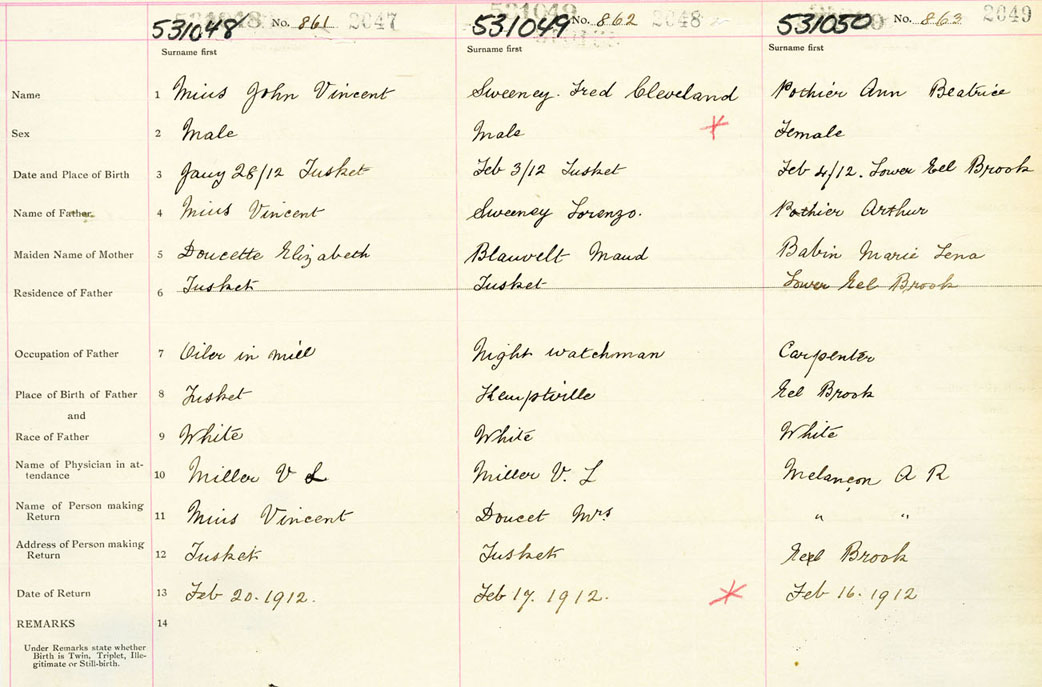 531048 No. 861 2047 531049 No. 862 2048 531050 No. 863 2049
Surname first Surname first Surname first
Name 1 Mius John Vincent Sweeney. Fred Cleveland Pothier Ann Beatrice
Sex 2 Male Male Female
Date and Place of Birth 3 Jany 28/12 Tusket Feb 3/12 Tusket Feb 4/12. Lower Eel Brook
Name of Father 4 Mius Vincent Sweeney Lorenzo. Pothier Arthur
Maiden Name of Mother 5 Doucette Elizabeth Blauvelt Maud Babin Marie Lena
Residence of Father 6 Tusket Tusket Lower Eel Brook
Occupation of Father 7 Oiler in mill Night watchman Carpenter
Place of Birth of Father 8 Tusket Kemptville Eel Brook
and
Race of Father 9 White White White
Name of Physician in at-
tendance 10 Miller V L Miller V. L Melançon A R
Name of Person making
Return 11 Mius Vincent Doucet Mrs " "
Address of Person making
Return 12 Tusket Tusket Eel Brook
Date of Return 13 Feb 20.1912. Feb 17. 1912. Feb 16.1912
REMARKS 14
Under Remarks state whether
Birth is Twin, Triplet, Ille-
gitimate or Still-birth.